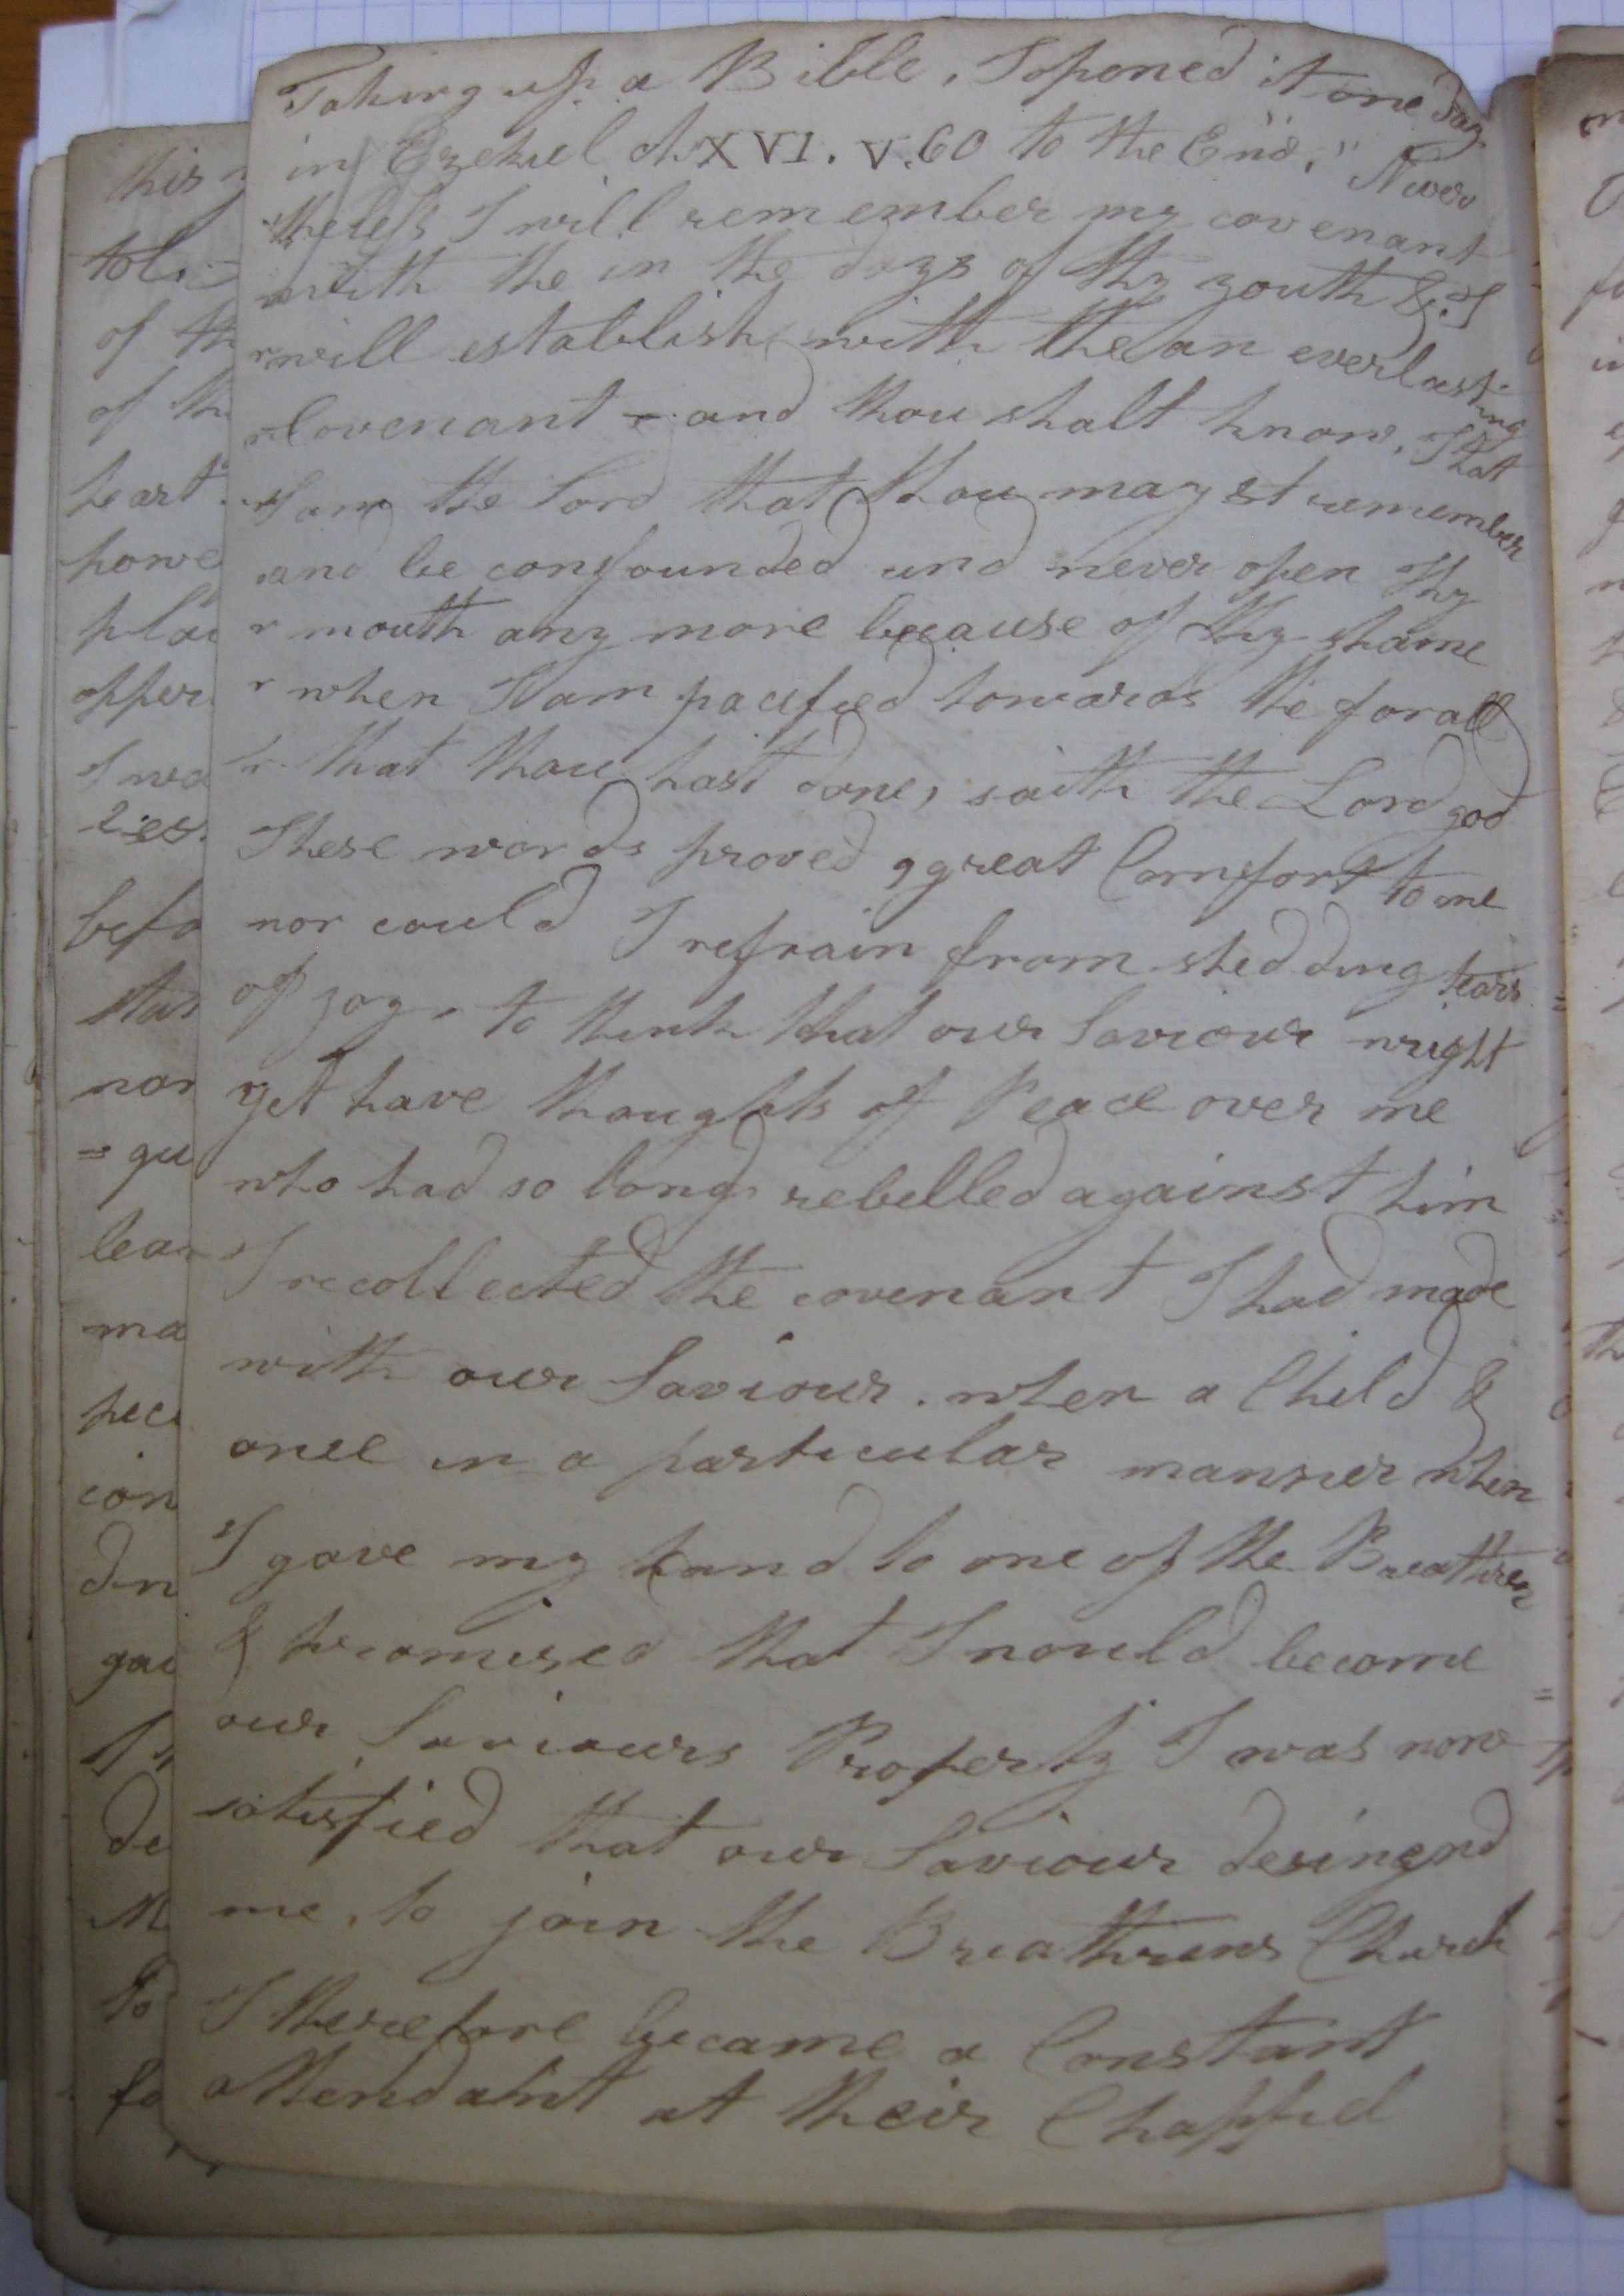 Taking up a Bible, I opened it one day
in Ezekiel ch XVI. v. 60 to the End, " Never
theless I will remember my covenant
with the in the days of thy youth & I
will establish with the an everlasting
Covenant - and thou shalt know, That
I am the Lord that thou mayest remember
and be confounded and never open thy
mouth any more because of thy shame
when I am pacified towards the for all
that thou hast done, saith the Lord god
These words proved a great Comfort to me
nor could I refrain from shedding tears
of joy, to think that our Saviour might
yet have thoughts of Peace over me
who had so long rebelled against him
I recollected the covenant I had made
with our Saviour. when a Child &
once in a particular manner when
I gave my hand to one of the Breathren
& promised that I would become
our Saviours Property I was now
satisfied that our Saviour desingnd
me, to join the Breathrens Church
I therefore became a Constant
attendaint at their Chappel
this
of th
of th
heart
powe
plai
opper
I wa
lies.
befo
star
nor
= gu
lear
ma
pec
con
din
gai
de
M
to
fo